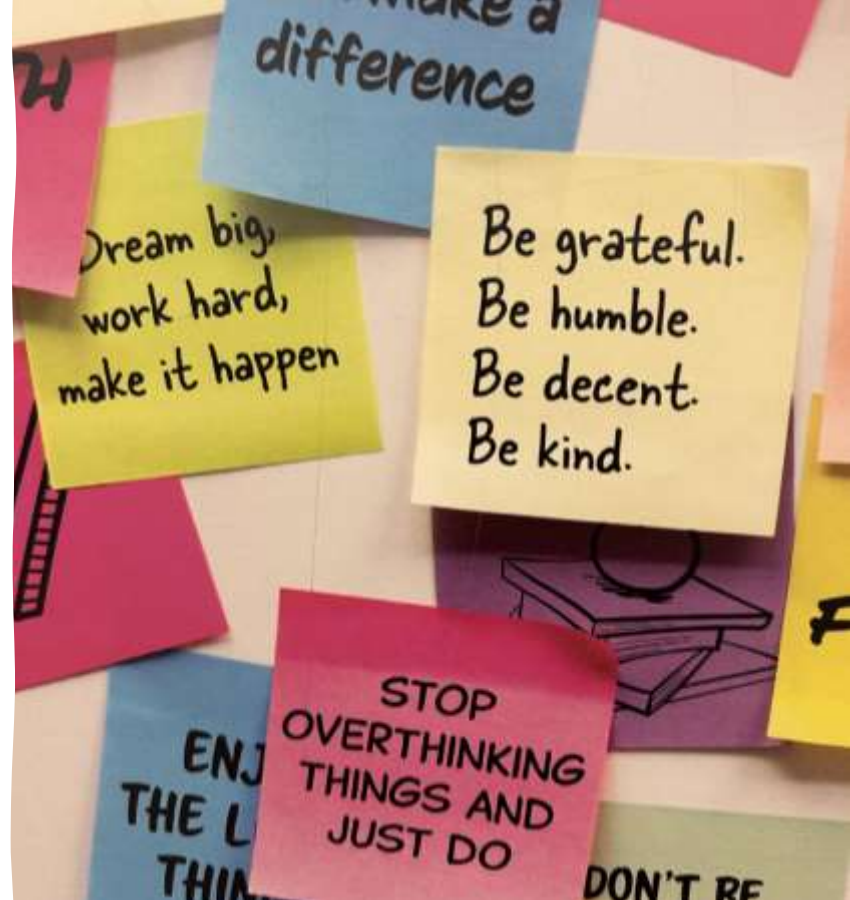 make a
difference
Dream big,
work hard,
make it happen
Be grateful.
Be humble.
Be decent.
Be kind.
STOP
OVERTHINKING
THINGS AND
JUST DO
THE
DON'T BE